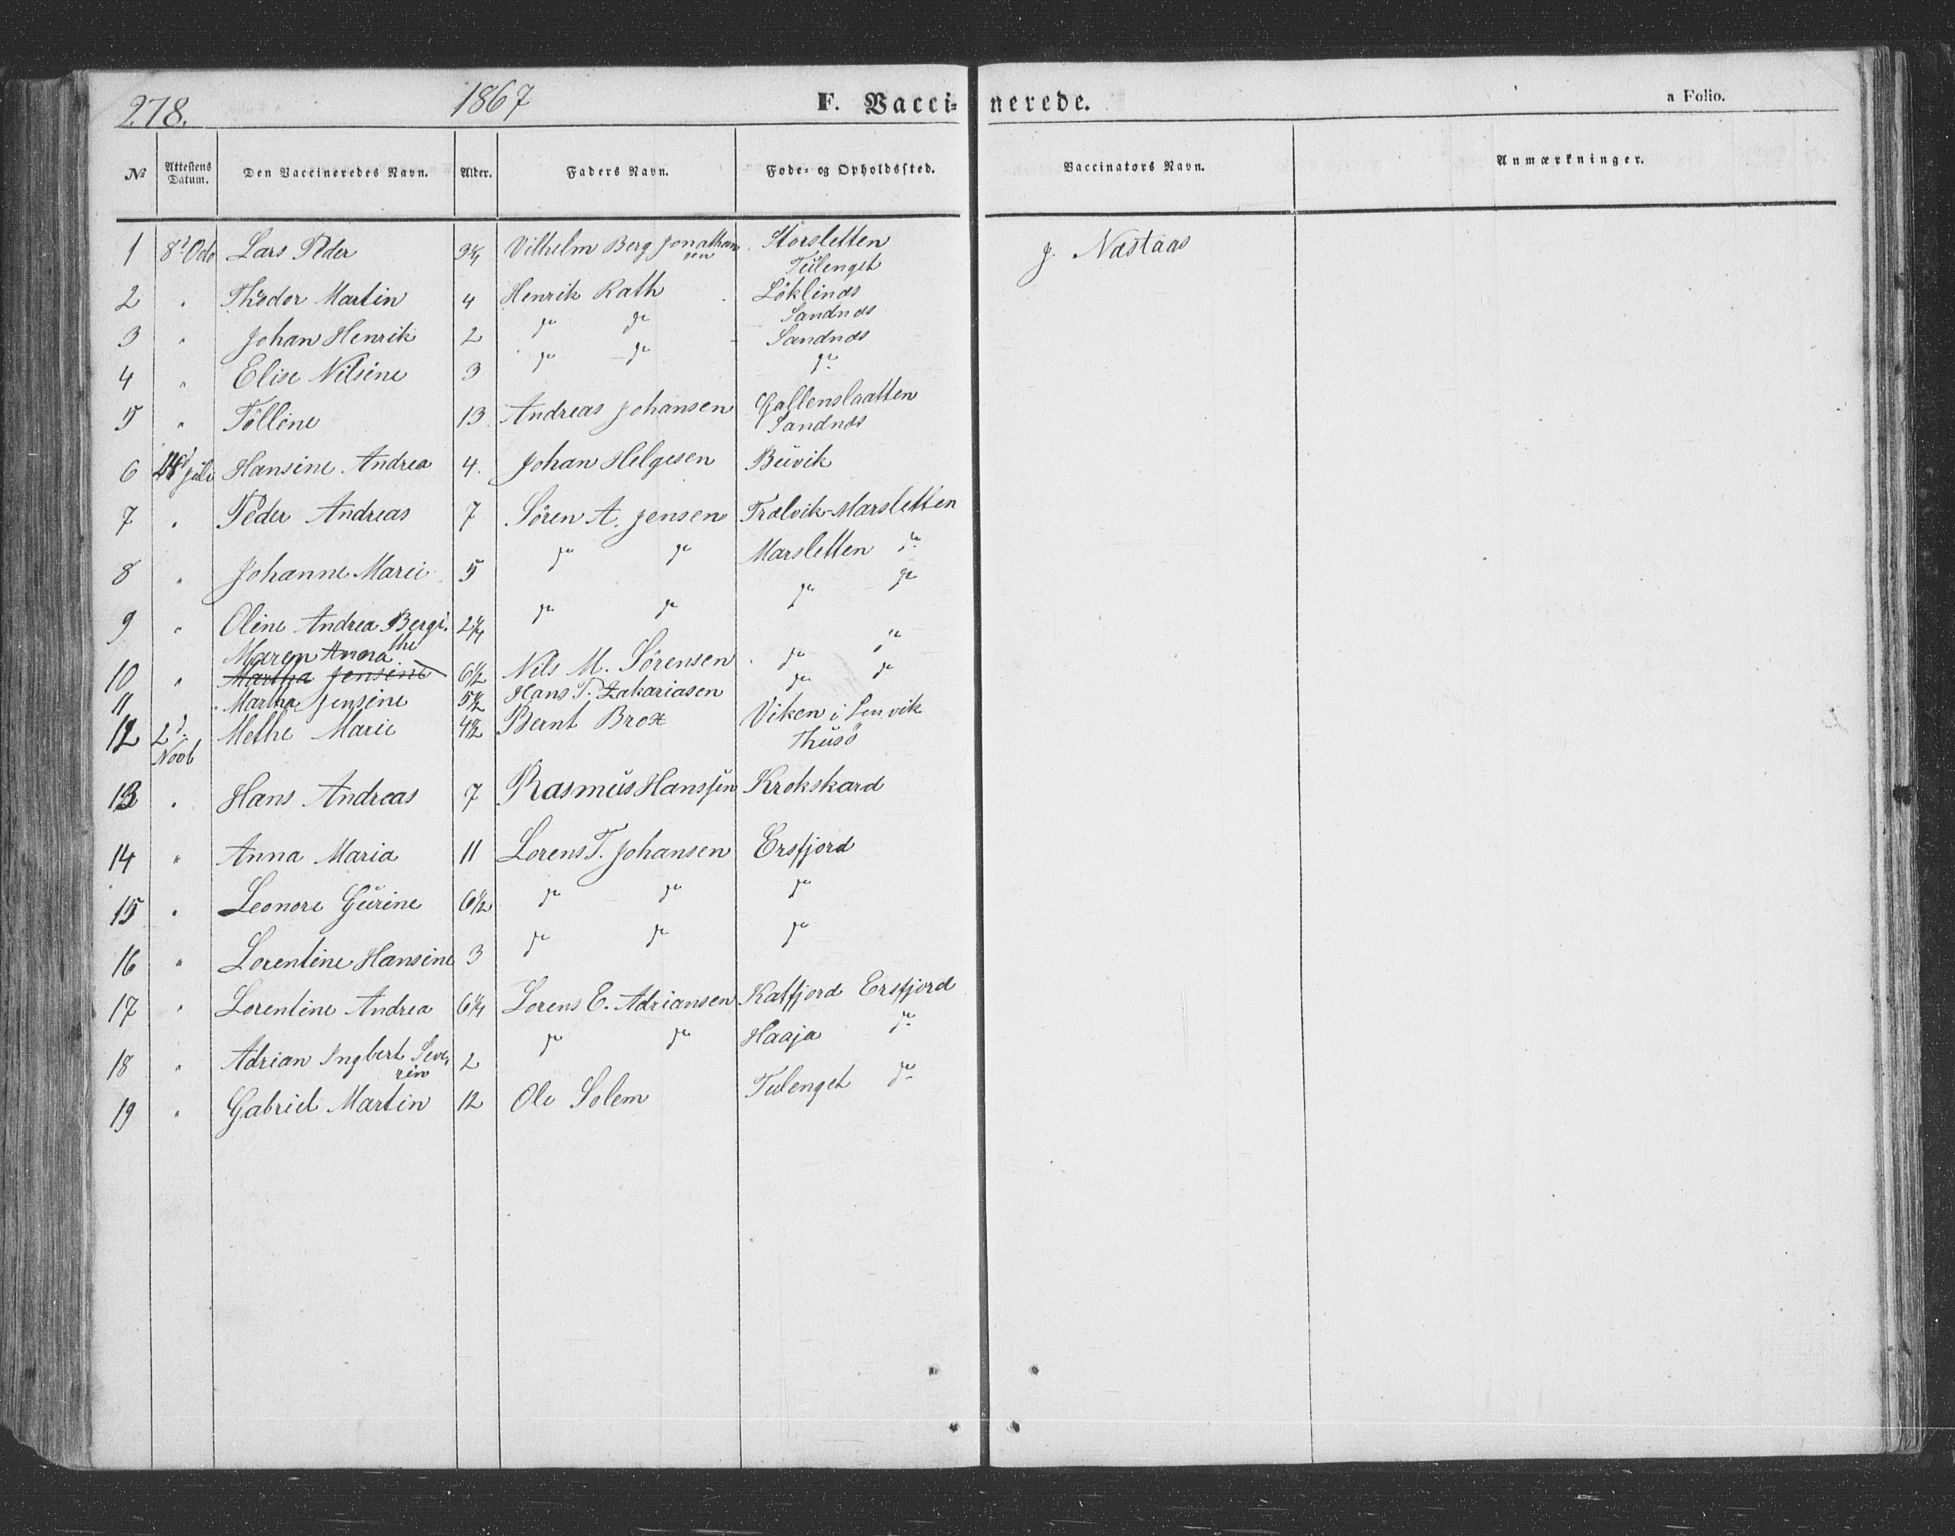 278. 1867 F. Vaccinerede. a Folio.
No Attestens Datum. Den Vaccineredes Navn. Alder. Faders Navn. Føde- og Opholdssted. Vaccinators Navn. Anmærkninger.
1 8d Octo Lars Peder Vilhelm Berg Jonathan Storsletten J. Nastaas
sen Tülenget
2 " Theodor Martin 4 Henrik Rath Löklinds
Sandnds
3 " Johan Henrik 2 do do Sandnds
4 " Elise Nilsine 3 do do do
5 " Tölline 13 Andreas Johansen Gallenslaatten
Sandnds
6 Juli Hansine Andrea 4. Johan Helgesen Büvik
7 " Peder Andreas 7 Sören A. Jensen Trælvik Marsletten
8 " Johanne Marie 5 do do Marsletten do
9 " Oline Andrea Bergi. 2 1/4 do do do do
the
Maren Anna
10 " Martha Jensine 6 1/2 Nils M. Sörensen do "
11 " Martha Jensine 5 1/2 Hans T. Zakariasen do do
12 2d. Methe Marie 4 1/2 Bernt Brox Viken i Lenvik
Novb Thusö
13 " Hans Andreas 7 Rasmüs Hanssen Krokskard
14 " Anna Maria 11 Lorens T. Johansen Ersfjord
15 " Leonore Gürine 6 1/2 do do do
16 " Lorentine Hansine 3 do do do
17 " Lorentine Andrea 6 1/4 Lorens E. Adriansen Katfjord Ersfjord
18 " Adrian Ingbert Seve- 2 do do Haaja do
rin
19 " Gabriel Martin 12 Ole Solem Tulenget do